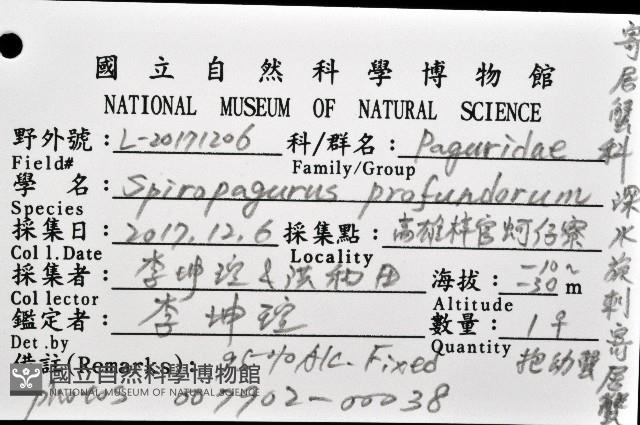 國立自然科學博物館
NATIONAL MUSEUM OF NATURAL SCIENCE
野外號: L-20171206 科/群名: Paguridae
Field# Family/Group
學 名: Spiropagurus profundorum
Species
採集日: 2017.12.6 採集點: 高雄梓官蚵仔寮
Coll.Date Locality
採集者: 李坤瑄 & 洪 海拔: -10~-30 m
Collector Altitude
鑑定者: 李坤瑄 數量: 1♀
Det.by Quantity 抱幼蟹
備註(Remarks): 95% Alc. Fixed
photos 00038
國立自然科學博物館
NATIONAL MUSEUM OF NATURAL SCIENCE
寄居蟹科 深水旋刺寄居蟹